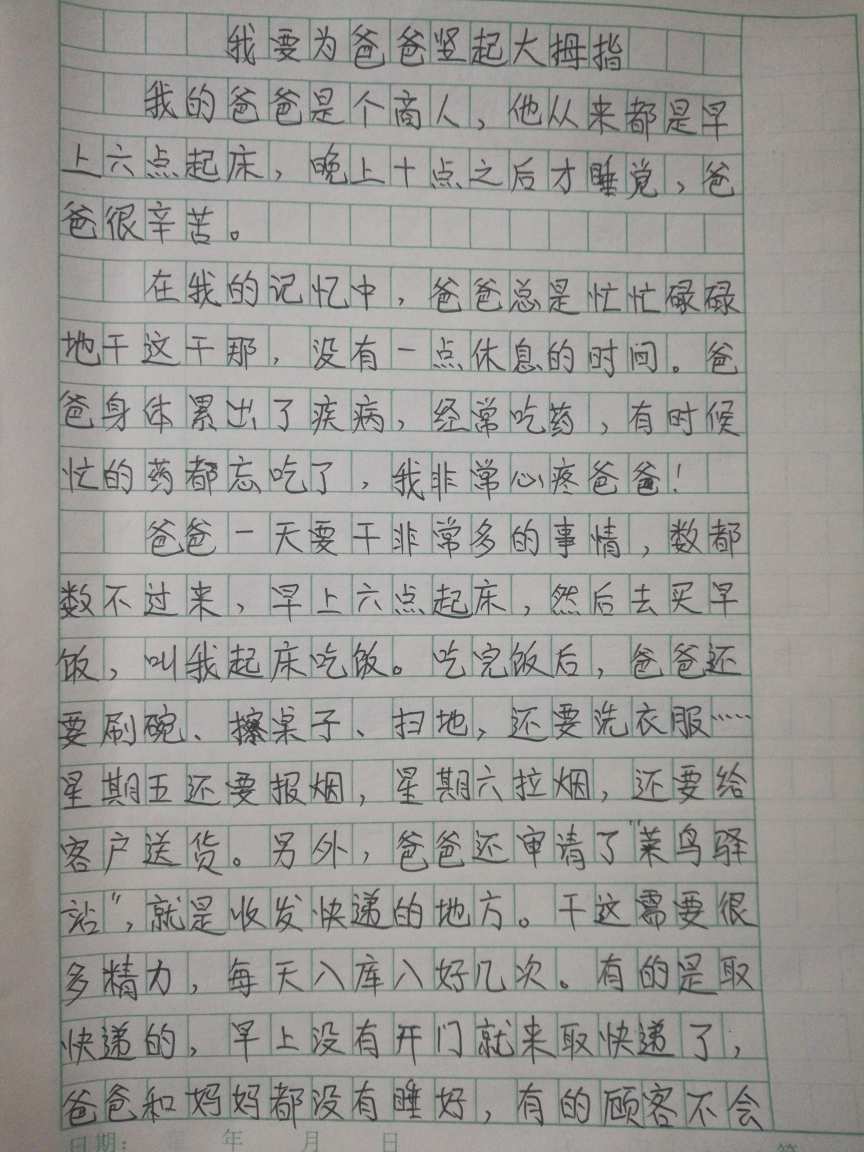 我要为爸爸竖起大拇指
我的爸爸是个商人，他从来都是早
上六点起床，晚上十点之后才睡觉，爸
爸很辛苦。
在我的记忆中，爸爸总是忙忙碌碌
地干这干那，没有一点休息的时间。爸
爸身体累出了疾病，经常吃药，有时候
忙的药都忘吃了，我非常心疼爸爸！
爸爸一天要干非常多的事情，数都
数不过来，早上六点起床，然后去买早
饭，叫我起床吃饭。吃完饭后，爸爸还
要刷碗、擦桌子、扫地，还要洗衣服……
星期五还要报烟，星期六拉烟，还要给
客户送货。另外，爸爸还审请了"菜鸟驿
站"，就是收发快递的地方。干这需要很
多精力，每天入库入好几次。有的是取
快递的，早上没有开门就来取快递了，
爸爸和妈妈都没有睡好，有的顾客不会
日期： 年 月 日